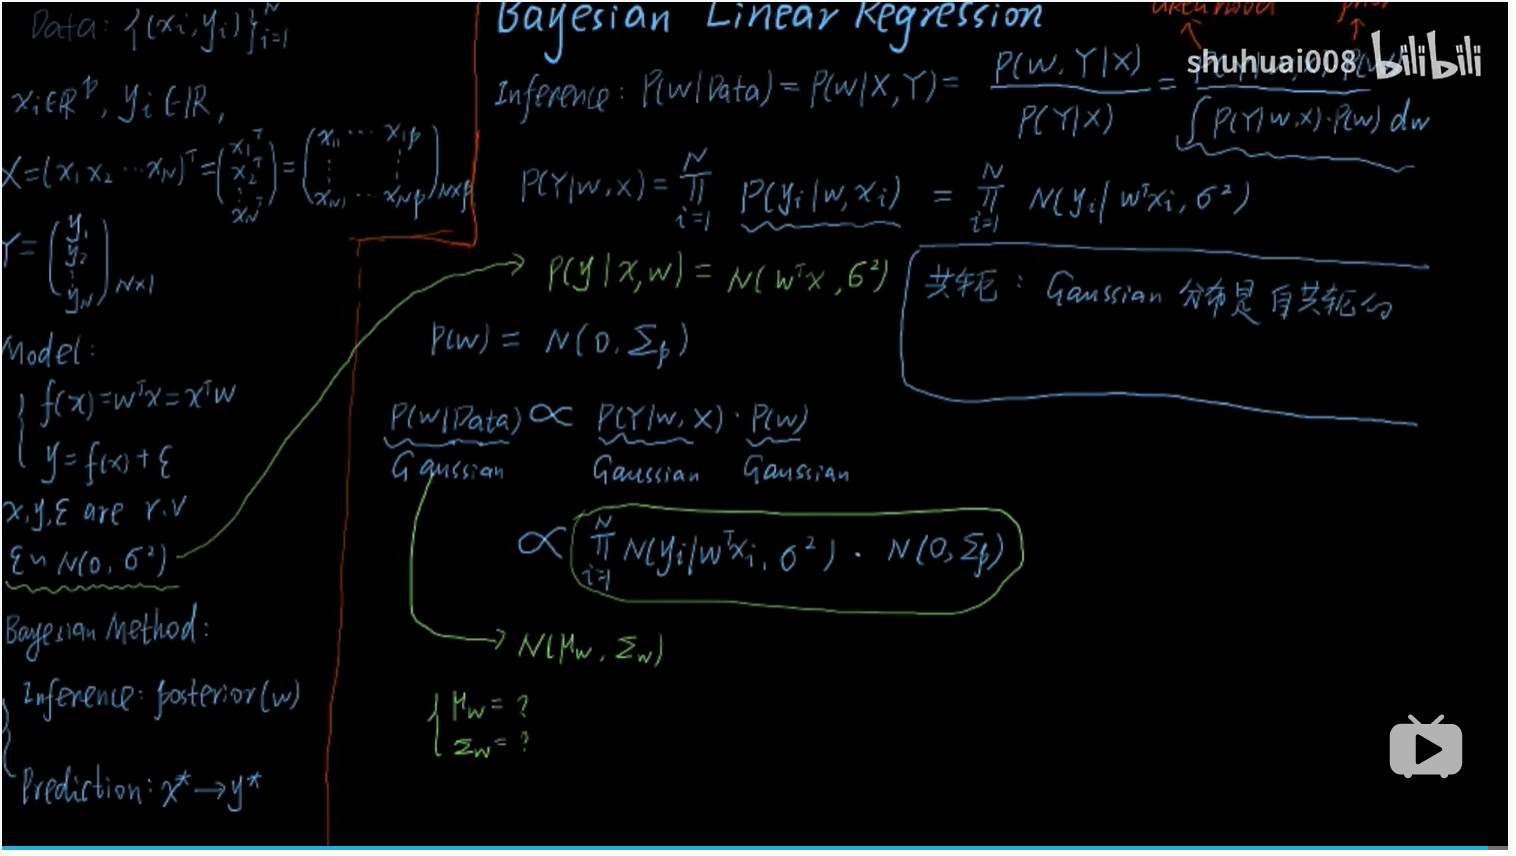 Data: {(xi, yi)}_{i=1}^{N}
xi∈ℝ^p, yi∈ℝ,
X=(x1 x2 ⋯ xN)^T=(x1^T x2^T ⋮ xN^T)=(x11 ⋯ x1p ⋮ ⋮ xN1 ⋯ xNp)_{N×p}
Y=(y1 y2 ⋮ yN)_{N×1}
Model:
{ f(x)=w^Tx=x^Tw
y=f(x)+ε
x,y,ε are r.v
ε~N(0,σ²)
Bayesian Method:
{ Inference: posterior(w)
Prediction: x*→y*
Bayesian Linear Regression
likelihood prior
shuhuai008 bilibili
Inference: P(w|Data)=P(w|X,Y)= P(w,Y|X) / P(Y|X) = / ∫P(Y|w,X)·P(w) dw
P(Y|w,X)=∏_{i=1}^{N} P(yi|w,xi) = ∏_{i=1}^{N} N(yi|w^Txi,σ²)
P(y|x,w)=N(w^Tx,σ²)
共轭: Gaussian 分布是自共轭的
P(w)=N(0,Σp)
P(w|Data) ∝ P(Y|w,X)·P(w)
Gaussian Gaussian Gaussian
∝ ∏_{i=1}^{N} N(yi|w^Txi,σ²)·N(0,Σp)
→ N(μw,Σw)
{ μw=?
Σw=?